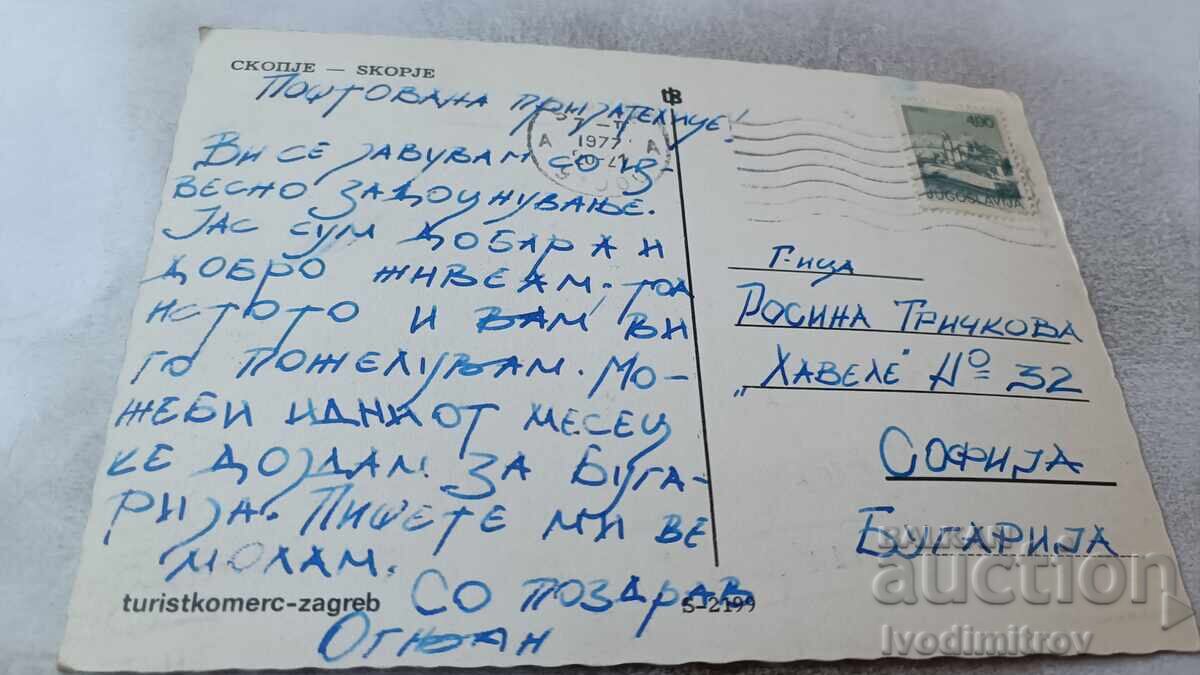 СКОПЈЕ — SKOPJE
ПОЧТОВАНА ПРИЈАТЕЛИЦЕ!
ВИ СЕ ЈАВУВАМ СО ИЗ-
ВЕСНО ЗАДОЦНУВАЊЕ.
ЈАС СУМ ДОБАР И
ДОБРО ЖИВЕАМ. ТОА
ИСТОТО И ВАМ ВИ
ГО ПОЖЕЛУВАМ. МО-
ЖЕБИ ИДНИОТ МЕСЕЦ
КЕ ДОЈДАМ ЗА БУГА-
РИЈА. ПИШЕТЕ МИ ВЕ
МОЛАМ.
СО ПОЗДРАВ
ОГЊАН
turistkomerc-zagreb
S-2199
A 1977 A
400
JUGOSLAVIJA
Г-ИЦА
РОСИНА ТРИЧКОВА
„ХАВЕЛЕ" No 32
СОФИЈА
БУГАРИЈА
BALKAN
auction
Ivodimitrov